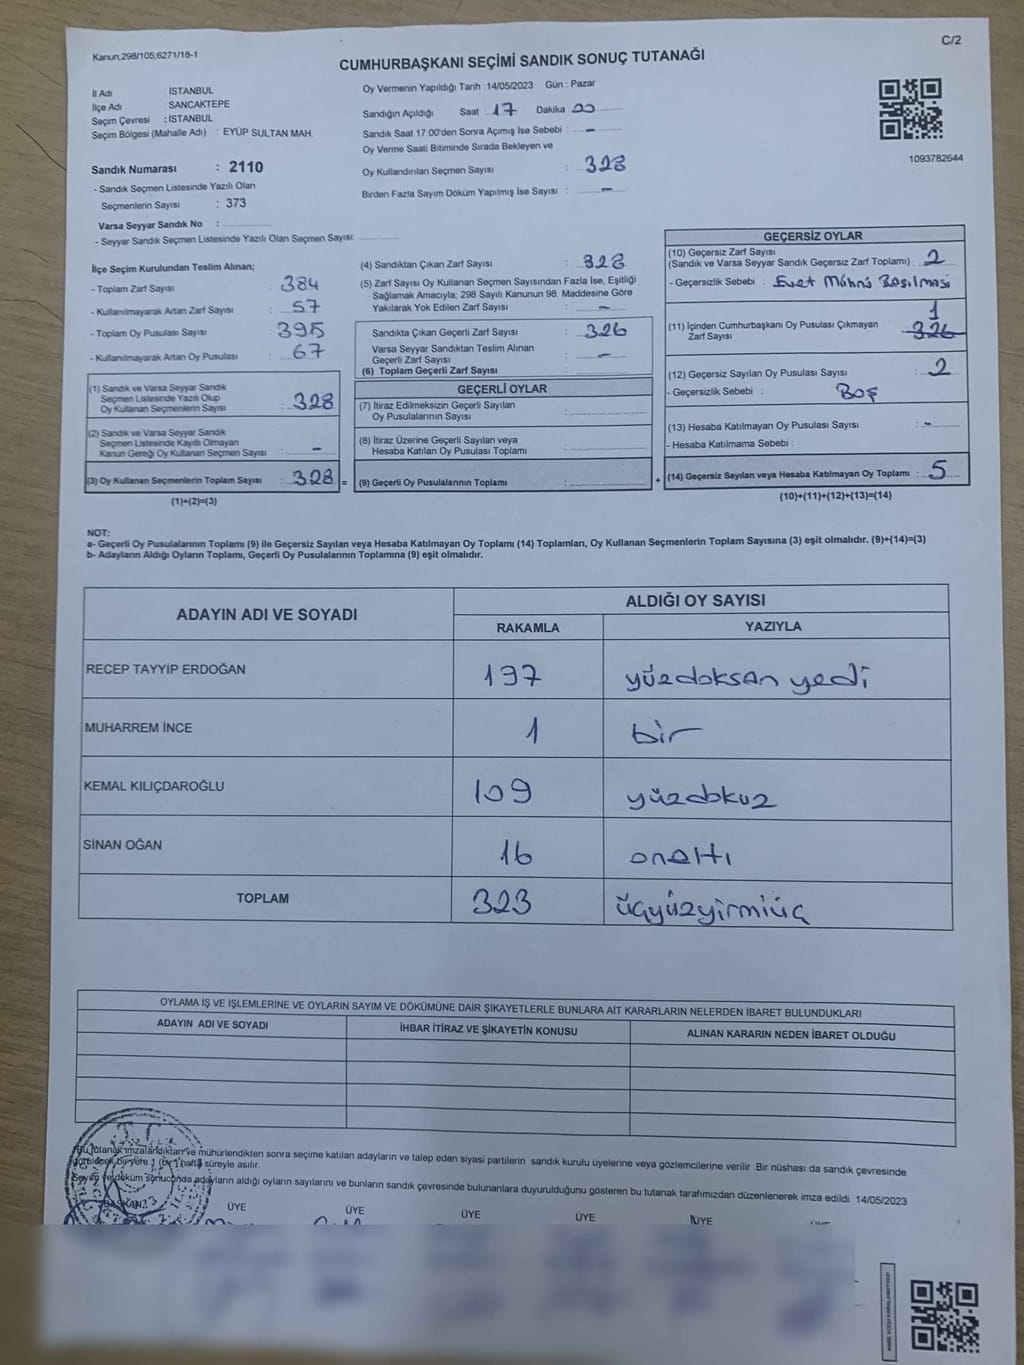 Kanun,298/105,6271/18-1
C/2
CUMHURBAŞKANI SEÇİMİ SANDIK SONUÇ TUTANAĞI
İl Adı : İSTANBUL
İlçe Adı : SANCAKTEPE
Seçim Çevresi : İSTANBUL
Seçim Bölgesi (Mahalle Adı) : EYÜP SULTAN MAH.
Sandık Numarası : 2110
- Sandık Seçmen Listesinde Yazılı Olan
Seçmenlerin Sayısı : 373
Varsa Seyyar Sandık No :
- Seyyar Sandık Seçmen Listesinde Yazılı Olan Seçmen Sayısı:
Oy Vermenin Yapıldığı Tarih :14/05/2023 Gün : Pazar
Sandığın Açıldığı Saat : 17 Dakika : 00
Sandık Saat 17:00'den Sonra Açımış İse Sebebi : -
Oy Verme Saati Bitiminde Sırada Bekleyen ve
Oy Kullandırılan Seçmen Sayısı : 328
Birden Fazla Sayım Döküm Yapılmış İse Sayısı : -
1093782644
İlçe Seçim Kurulundan Teslim Alınan;
- Toplam Zarf Sayısı : 384
- Kullanılmayarak Artan Zarf Sayısı : 57
- Toplam Oy Pusulası Sayısı : 395
- Kullanılmayarak Artan Oy Pusulası : 67
(1) Sandık ve Varsa Seyyar Sandık
Seçmen Listesinde Yazılı Olup
Oy Kullanan Seçmenlerin Sayısı : 328
(2) Sandık ve Varsa Seyyar Sandık
Seçmen Listesinde Kayıtlı Olmayan
Kanun Gereği Oy Kullanan Seçmen Sayısı : -
(3) Oy Kullanan Seçmenlerin Toplam Sayısı : 328 =
(1)+(2)=(3)
(4) Sandıktan Çıkan Zarf Sayısı : 328
(5) Zarf Sayısı Oy Kullanan Seçmen Sayısından Fazla İse, Eşitliği
Sağlamak Amacıyla; 298 Sayılı Kanunun 98. Maddesine Göre
Yakılarak Yok Edilen Zarf Sayısı : -
Sandıkta Çıkan Geçerli Zarf Sayısı : 326
Varsa Seyyar Sandıktan Teslim Alınan
Geçerli Zarf Sayısı : -
(6) Toplam Geçerli Zarf Sayısı :
GEÇERLİ OYLAR
(7) İtiraz Edilmeksizin Geçerli Sayılan
Oy Pusulalarının Sayısı :
(8) İtiraz Üzerine Geçerli Sayılan veya
Hesaba Katılan Oy Pusulası Toplamı :
(9) Geçerli Oy Pusulalarının Toplamı : +
GEÇERSİZ OYLAR
(10) Geçersiz Zarf Sayısı
(Sandık ve Varsa Seyyar Sandık Geçersiz Zarf Toplamı) : 2
- Geçersizlik Sebebi : Evet Mührü Basılması
1
(11) İçinden Cumhurbaşkanı Oy Pusulası Çıkmayan
Zarf Sayısı : 326
(12) Geçersiz Sayılan Oy Pusulası Sayısı : 2
- Geçersizlik Sebebi : Boş
(13) Hesaba Katılmayan Oy Pusulası Sayısı : -
- Hesaba Katılmama Sebebi :
(14) Geçersiz Sayılan veya Hesaba Katılmayan Oy Toplamı : 5
(10)+(11)+(12)+(13)=(14)
NOT:
a- Geçerli Oy Pusulalarının Toplamı (9) ile Geçersiz Sayılan veya Hesaba Katılmayan Oy Toplamı (14) Toplamları, Oy Kullanan Seçmenlerin Toplam Sayısına (3) eşit olmalıdır. (9)+(14)=(3)
b- Adayların Aldığı Oyların Toplamı, Geçerli Oy Pusulalarının Toplamına (9) eşit olmalıdır.
ADAYIN ADI VE SOYADI
ALDIĞI OY SAYISI
RAKAMLA YAZIYLA
RECEP TAYYİP ERDOĞAN 197 yüzdoksan yedi
MUHARREM İNCE 1 bir
KEMAL KILIÇDAROĞLU 109 yüzdokuz
SİNAN OĞAN 16 onaltı
TOPLAM 323 üçyüzyirmiüç
OYLAMA İŞ VE İŞLEMLERİNE VE OYLARIN SAYIM VE DÖKÜMÜNE DAİR ŞİKAYETLERLE BUNLARA AİT KARARLARIN NELERDEN İBARET BULUNDUKLARI
ADAYIN ADI VE SOYADI İHBAR İTİRAZ VE ŞİKAYETİN KONUSU ALINAN KARARIN NEDEN İBARET OLDUĞU
Bu tutanak imzalandıktan ve mühürlendikten sonra seçime katılan adayların ve talep eden siyasi partilerin sandık kurulu üyelerine veya gözlemcilerine verilir. Bir nüshası da sandık çevresinde
bir yere 1 (bir) hafta süreyle asılır.
Sayım ve döküm sonucunda adayların aldığı oyların sayılarını ve bunların sandık çevresinde bulunanlara duyurulduğunu gösteren bu tutanak tarafımızdan düzenlenerek imza edildi. 14/05/2023
BAŞKAN ÜYE ÜYE ÜYE ÜYE ÜYE ÜYE